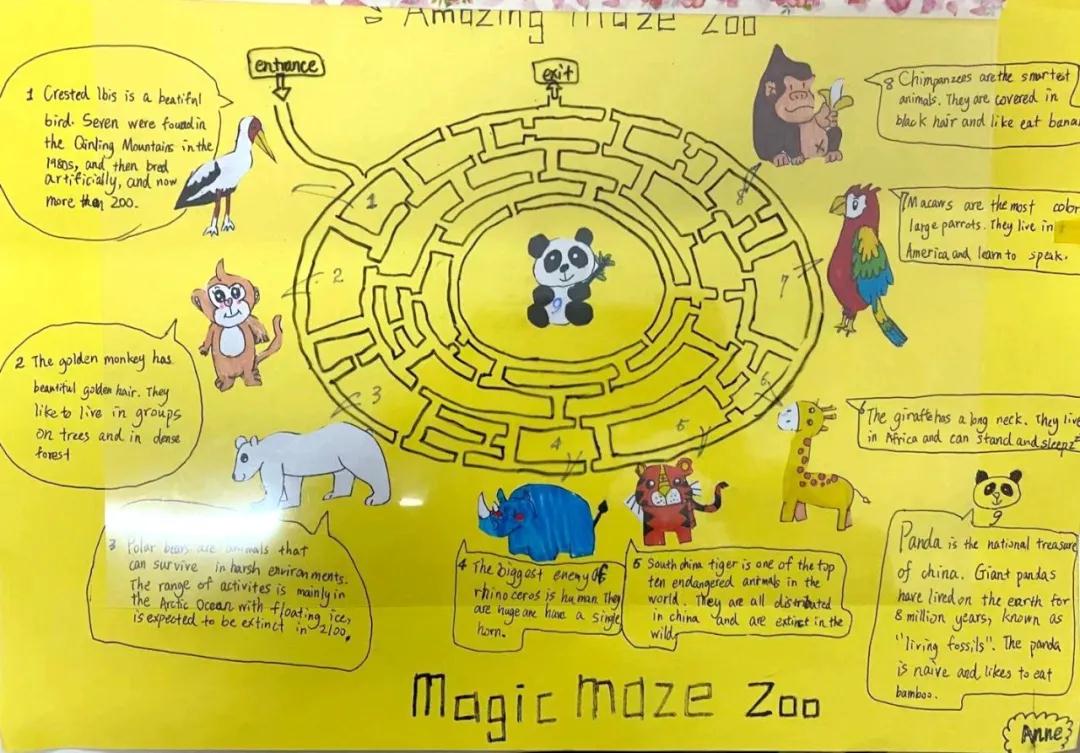 Amazing maze Zoo
entrance
exit
1 Crested Ibis is a beatiful
bird. Seven were found in
the Qinling Mountains in the
1980s, and then bred
artificially, and now
more than 200.
2 The golden monkey has
beautiful golden hair. They
like to live in groups
on trees and in dense
forest
3 Polar bears are animals that
can survive in harsh environments.
The range of activites is mainly in
the Arctic Ocean with floating ice,
is expected to be extinct in 2100.
4 The biggest enemy of
rhinoceros is human They
are huge are have a single
horn.
5 South china tiger is one of the top
ten endangered animals in the
world. They are all distributed
in china and are extinct in the
wild
6 The giraffe has a long neck. They live
in Africa and can stand and sleep
7 Macaws are the most color
large parrots. They live in
America and learn to speak.
8 Chimpanzees are the smartest
animals. They are covered in
black hair and like eat bana
9
Panda is the national treasure
of china. Giant pandas
have lived on the earth for
8 million years, known as
"living fossils". The panda
is naive and likes to eat
bamboo.
1
2
3
4
5
6
7
8
9
Magic maze Zoo
Anne